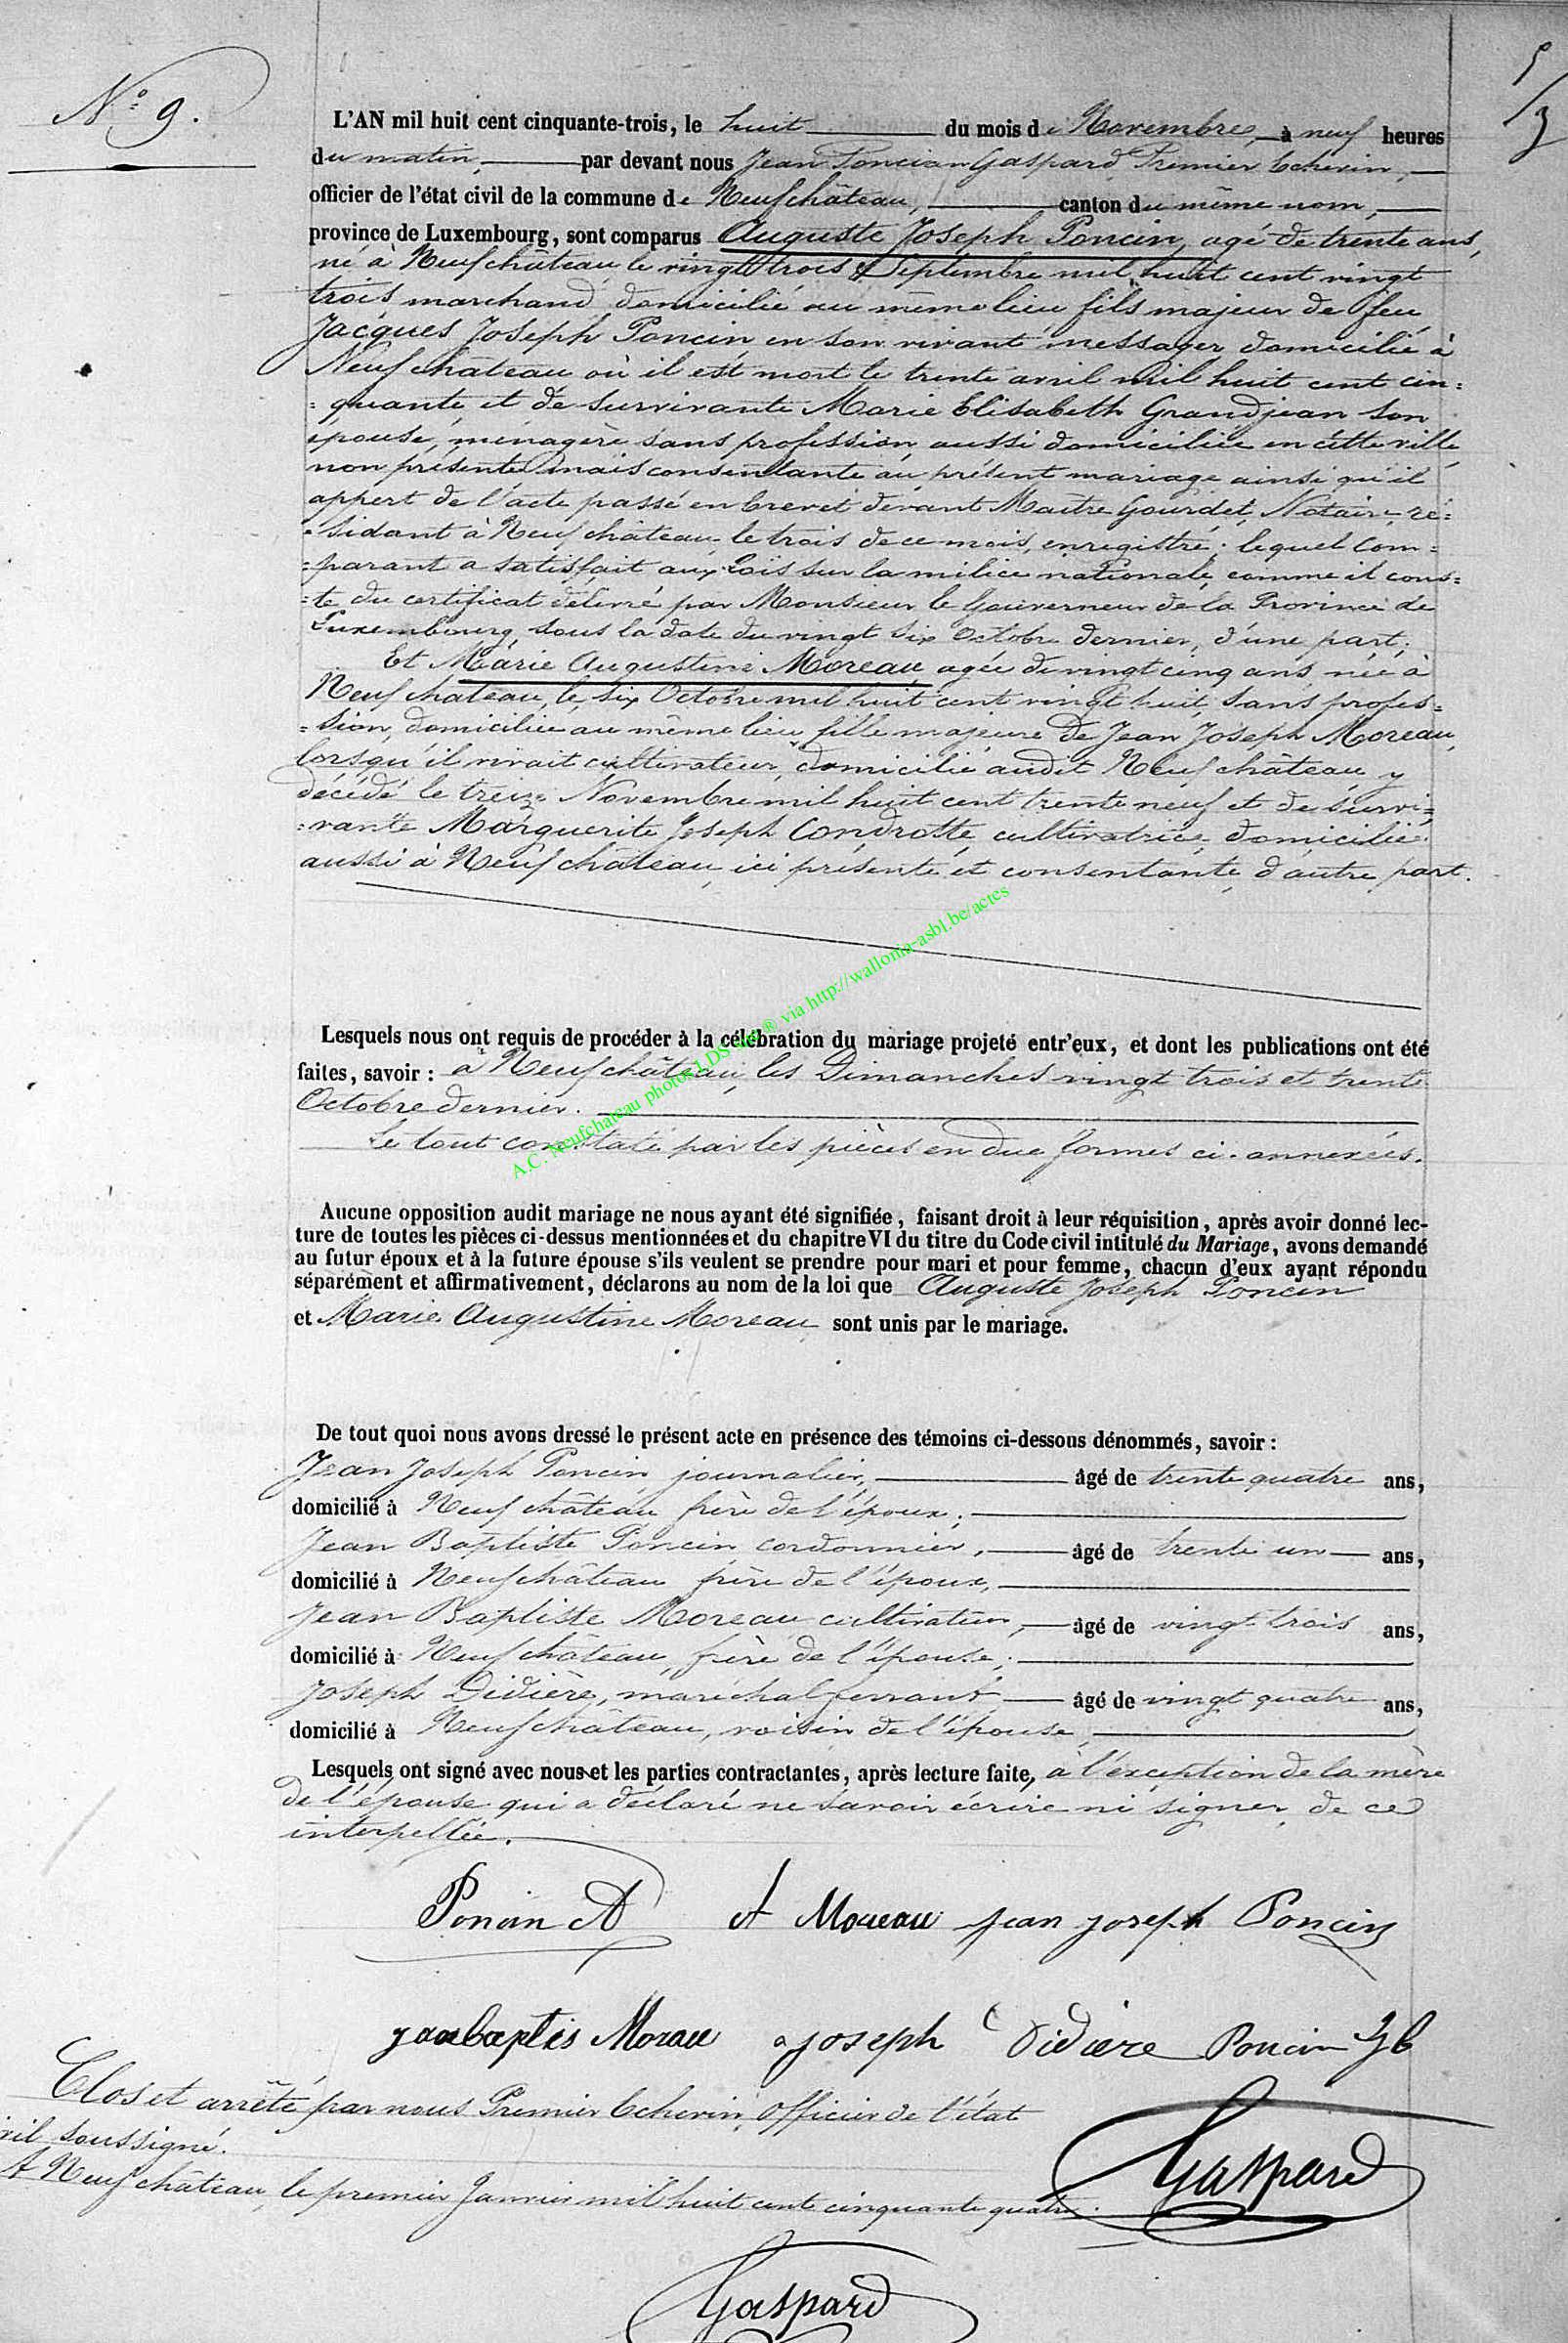 N° 9.
5/3
L'AN mil huit cent cinquante-trois, le huit du mois de Novembre, à neuf heures
du matin, par devant nous Jean Poncian Gaspard, Premier Echevin,
officier de l'état civil de la commune de Neufchâteau, canton du même nom,
province de Luxembourg, sont comparus Auguste Joseph Poncin, agé de trente ans,
né à Neufchâteau le vingt trois Septembre mil huit cent vingt
trois marchand domicilié au même lieu fils majeur de feu
Jacques Joseph Poncin, en son vivant messager domicilié à
Neufchâteau où il est mort le trente avril mil huit cent cin=
=quante, et de survivante Marie Elisabeth Grandjean son
épouse, ménagère sans profession, aussi domiciliée en cette ville
non présente mais consentante au présent mariage ainsi qu'il
appert de l'acte passé en brevet devant Maître Gourdet, Notaire, ré=
=sidant à Neufchâteau, le trois de ce mois, enregistré; lequel com=
=parant a satisfait aux Lois sur la milice nationale, comme il cons=
=te du certificat délivré par Monsieur le Gouverneur de la Province de
Luxembourg, sous la date du vingt six Octobre dernier, d'une part;
Et Marie Augustine Moreau, agée de vingt cinq ans, née à
Neufchateau, le six Octobre mil huit cent vingt huit, sans profes=
=sion, domiciliée au même lieu, fille majeure de Jean Joseph Moreau,
lorsqu'il vivait cultivateur, domicilié audit Neufchâteau, y
décédé le treize Novembre mil huit cent trente neuf et de survi=
=vante Marguerite Joseph Condrotte, cultivatrice, domiciliée
aussi à Neufchâteau, ici présente et consentante, d'autre part.
A.C. Neufchateau photos LDS site ® via http://wallonia-asbl.be/actes
Lesquels nous ont requis de procéder à la célébration du mariage projeté entr'eux, et dont les publications ont été
faites, savoir : à Neufchâteau, les Dimanches vingt trois et trente
Octobre dernier.
Le tout constaté par les pièces en due formes ci-annexées.
Aucune opposition audit mariage ne nous ayant été signifiée, faisant droit à leur réquisition, après avoir donné lec-
ture de toutes les pièces ci-dessus mentionnées et du chapitre VI du titre du Code civil intitulé du Mariage, avons demandé
au futur époux et à la future épouse s'ils veulent se prendre pour mari et pour femme, chacun d'eux ayant répondu
séparément et affirmativement, déclarons au nom de la loi que Auguste Joseph Poncin
et Marie Augustine Moreau sont unis par le mariage.
De tout quoi nous avons dressé le présent acte en présence des témoins ci-dessous dénommés, savoir :
Jean Joseph Poncin journalier, âgé de trente quatre ans,
domicilié à Neufchâteau frère de l'époux;
Jean Baptiste Poncin, cordonnier, âgé de trente un ans,
domicilié à Neufchâteau frère de l'époux,
Jean Baptiste Moreau cultivateur, âgé de vingt trois ans,
domicilié à Neufchâteau, frère de l'épouse;
Joseph Didière, maréchal ferrant âgé de vingt quatre ans,
domicilié à Neufchâteau, voisin de l'épouse,
Lesquels ont signé avec nous et les parties contractantes, après lecture faite, à l'exception de la mère
de l'épouse qui a déclaré ne savoir écrire ni signer, de ce
interpellée.
Poncin A A Moreau jean joseph Poncin
janbaptis Morau joseph Didiere Poncin JB
Clos et arrêté par nous Premier Echevin, Officier de l'état
ivil soussigné.
A Neufchâteau, le premier Janvier mil huit cent cinquante quatre.
Gaspard
Gaspard